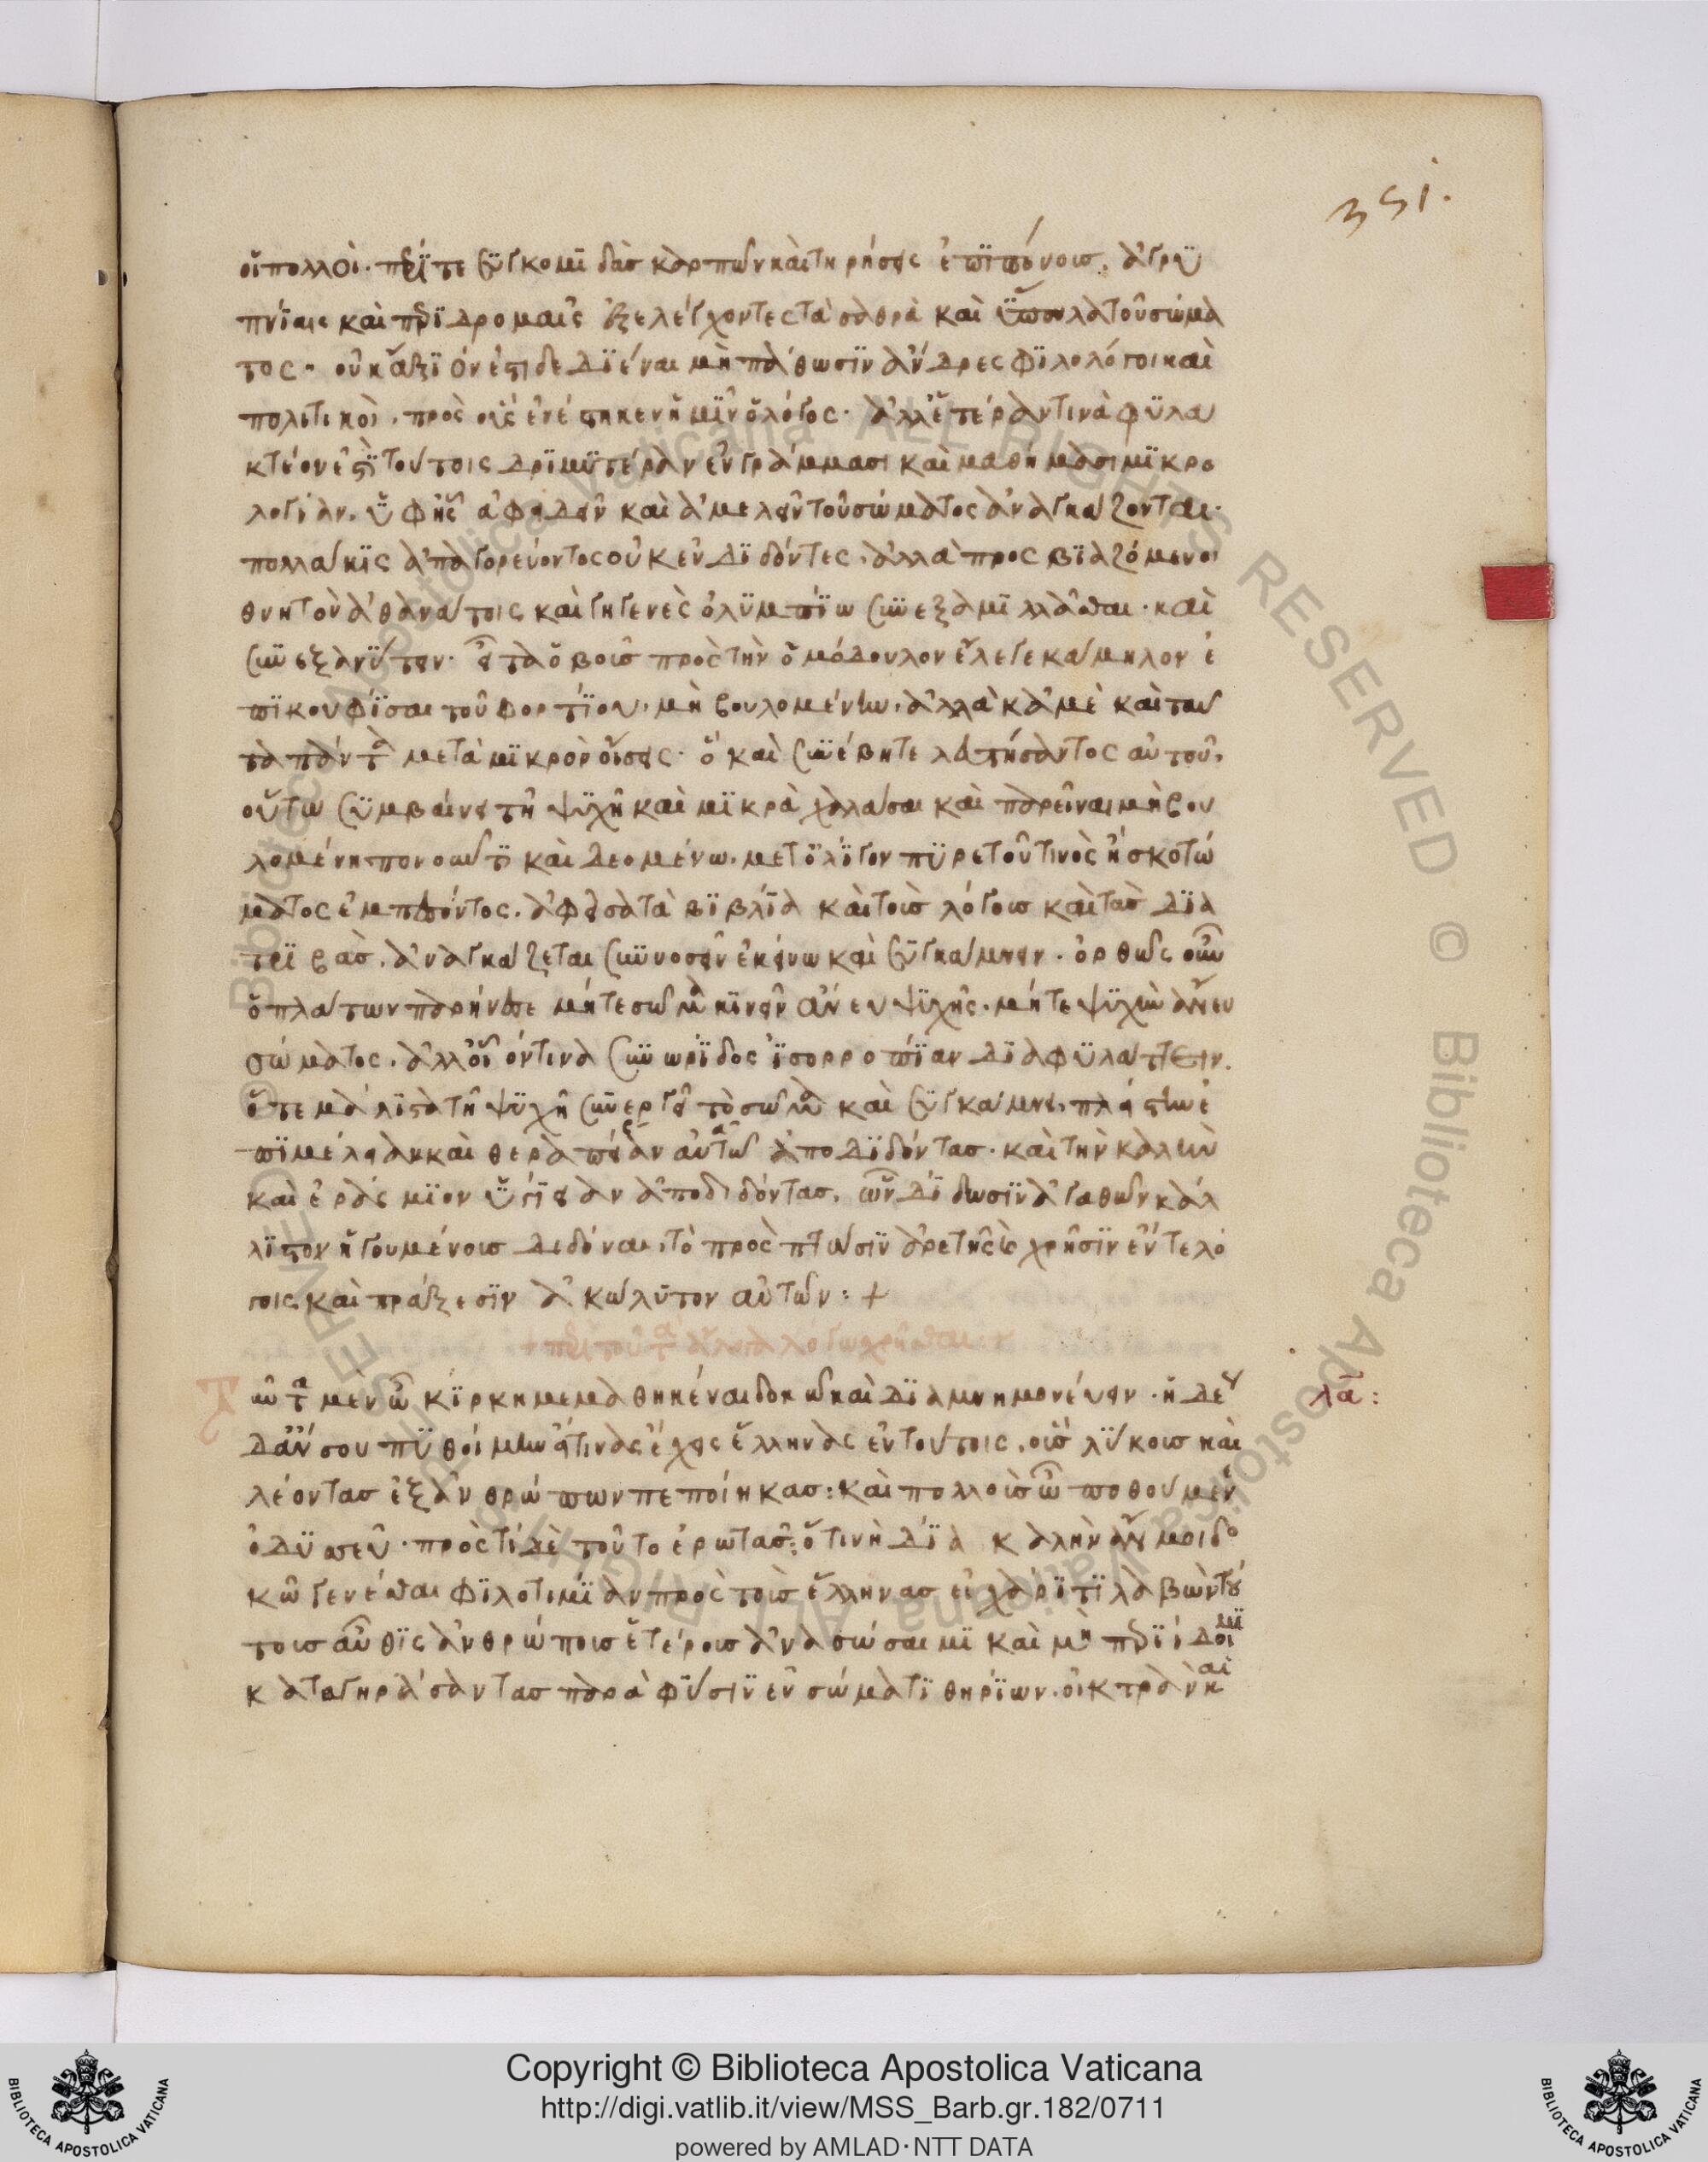 οἱ πολλοὶ. περί τε συγκομιδὰσ καρπῶν καὶ τηρήσεις ἐπιπόνοισ, ἀγρυ
πνίαις καὶ περιδρομαῖς ἐξελέγχοντες τὰ σαθρὰ καὶ ὕπουλα τοῦ σώμα
τος. οὐκ ἄξιόν ἐστι δεδιέναι μὴ πάθωσιν ἄνδρες φιλολόγοι καὶ
πολιτικοὶ. πρὸς οὓς ἐνέστηκεν ἡμῖν ὁ λόγος. ἀλλ' ἑτέραν τινὰ φυλα
κτέον ἐστὶ τούτοις δριμυτέραν ἐν γράμμασι καὶ μαθήμασι μικρο
λογίαν. ὑφ' ἧς ἀφειδεῖν καὶ ἀμελεῖν τοῦ σώματος ἀναγκάζονται.
πολλάκις ἀπαγορεύοντος οὐκ ἐνδιδόντες. ἀλλὰ προσβιαζόμενοι
θνητὸν ἀθανάτοις καὶ γηγενὲς ὀλυμπίω συνεξαμιλλᾶσθαι. καὶ
συνεξανύτειν. εἶτα ὁ βοῦσ πρὸς τὴν ὁμόδουλον ἔλεγε κάμηλον ἐ
πικουφίσαι τοῦ φορτίου. μὴ βουλομένην. ἀλλὰ κἀμὲ καὶ ταῦ
τα πάντα μετὰ μικρὸν οἴσεις. ὃ καὶ συνέβη τελευτήσαντος αὐτοῦ.
οὕτω συμβαίνει τῆ ψυχῆ καὶ μικρὰ χαλάσαι καὶ παρεῖναι μὴ βου
λομένη πονοῦντι καὶ δεομένω. μετ' ὀλίγον πυρετοῦ τινὸς ἢ σκοτώ
ματος ἐμπεσόντος. ἀφεῖσα τὰ βιβλία καὶ τοὺσ λόγουσ καὶ τὰσ δια
τριβὰσ. ἀναγκάζεται συννοσεῖν ἐκείνω καὶ συγκάμνειν. ὀρθῶς οὖν
ὁ πλάτων παρήνεσε μήτε σῶμα κινεῖν ἄνευ ψυχῆς. μήτε ψυχὴν ἄνευ
σώματος. ἀλλ' οἷόν τινα συνωρίδος ἰσορροπίαν διαφυλάττειν.
ὅτε μάλιστα τῆ ψυχῆ συνεργεῖ τὸ σῶμα καὶ συγκάμνει. πλείστην ἐ
πιμέλειαν καὶ θεραπείαν αὐτῶ ἀποδιδόντασ. καὶ τὴν καλὴν
καὶ ἐράσμιον ὑγίειαν ἀποδιδόντασ. ὧν δίδωσιν ἀγαθῶν κάλ
λιστον ἡγουμένουσ δεδόναι. τὸ πρὸς κτῶσιν ἀρετῆς καὶ χρῆσιν ἐν τε λό
γοις καὶ πράξεσιν ἀκώλυτον αὐτῶν: +
+ περὶ τοῦ τὰ ἄλογα λόγω χρῆσθαι
Ταῦτα μὲν ὦ κίρκη μεμαθηκέναι δοκῶ καὶ διαμνημονεύσειν. ἡδέ
δ' ἄν σου πυθοίμην εἴ τινας ἔχεις ἕλληνας ἐν τούτοις. οὓσ λύκουσ καὶ
λέοντασ ἐξ ἀνθρώπων πεποίηκασ: καὶ πολλοὺσ ὦ ποθούμεν
ὀδυσσεῦ. πρὸς τί δὲ τοῦτο ἐρωτᾶσ: ὅτι νὴ δία καλὴν ἄν μοι δο
κῶ γενέσθαι φιλοτιμίαν πρὸς τοὺσ ἕλληνασ εἰ χάριτι λαβὼν τού
τουσ αὖθις ἀνθρώπουσ ἑτέρουσ ἀνασώσαιμι καὶ μὴ περιίδοιμι
καταγηράσαντασ παρὰ φύσιν ἐν σώματι θηρίων. οἰκτρὰν καὶ
λα:
351.
Copyright © Biblioteca Apostolica Vaticana
http://digi.vatlib.it/view/MSS_Barb.gr.182/0711
powered by AMLAD·NTT DATA